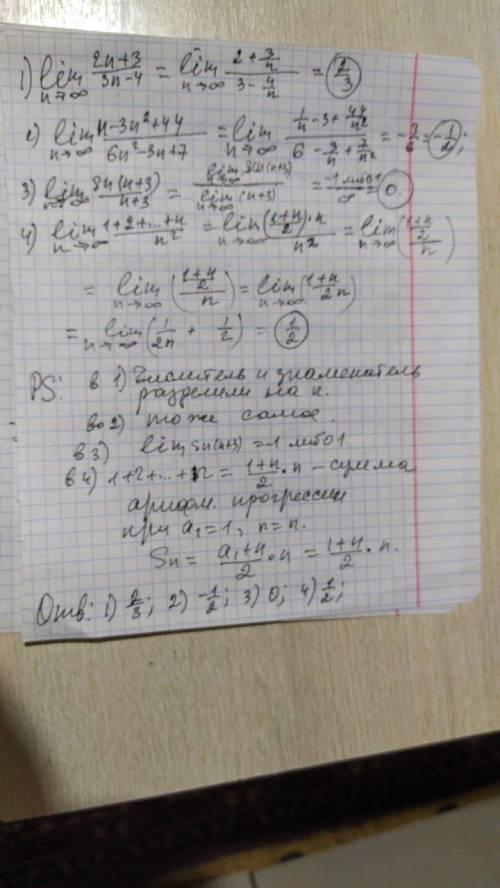 1) lim n→∞ (2n+3)/(3n-4) = lim n→∞ (2+3/n)/(3-4/n) = 2/3
2) lim n→∞ (n-3n²+44)/(6n²-3n+7) = lim n→∞ (1/n-3+44/n²)/(6-3/n+7/n²) = -3/6 = -1/2;
3) lim n→∞ Sn(n+3)/(n+3) = lim n→∞ Sin(n+3)/lim n→∞ (n+3) = -1 либо 1/∞ = 0.
4) lim n→∞ (1+2+...+n)/n² = lim n→∞ ((1+n)/2)·n/n² = lim n→∞ ((1+n)/2/n)
= lim n→∞ ((1+n)/2/n) = lim n→∞ ((1+n)/2n)
= lim n→∞ (1/2n + 1/2) = 1/2
PS: в 1) Числитель и знаменатель
разделили на n.
во 2) тоже самое.
в 3) lim Sn(n+3) = -1 либо 1.
в 4) 1+2+...+n = (1+n)/2·n - сумма
арифм. прогрессии
при a₁=1, n=n.
Sn = (a₁+n)/2·n = (1+n)/2·n.
Отв: 1) 2/3; 2) -1/2; 3) 0; 4) 1/2;